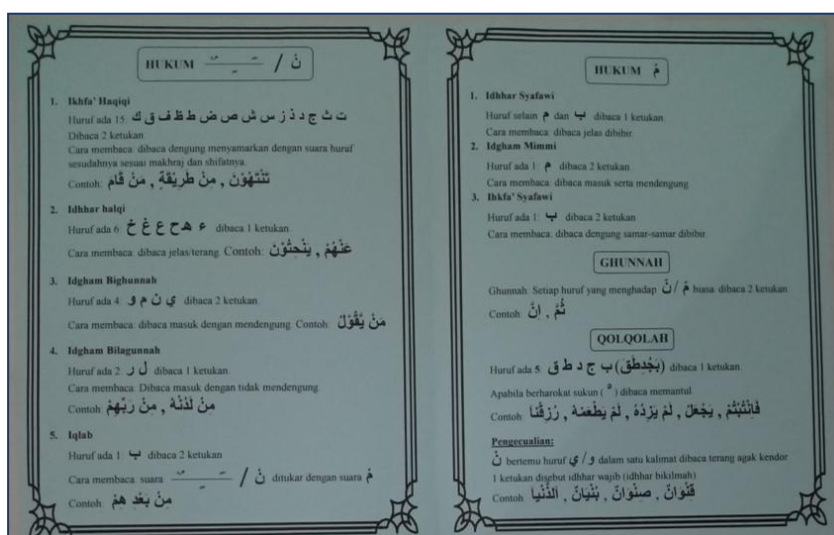 HUKUM ـًـ ـٍـ ـٌـ / نْ
1. Ikhfa' Haqiqi
Huruf ada 15: ت ث ج د ذ ز س ش ص ض ط ظ ف ق ك
Dibaca 2 ketukan
Cara membaca: dibaca dengung menyamarkan dengan suara huruf
sesudahnya sesuai makhraj dan shifatnya.
Contoh: تَنْتَهُوْنَ , مِنْ طَرِيْقَةٍ , مَنْ قَامَ
2. Idhhar halqi
Huruf ada 6: ء ه ح ع غ خ dibaca 1 ketukan
Cara membaca: dibaca jelas/terang. Contoh: عَنْهُمْ , يَنْحِتُوْنَ
3. Idgham Bighunnah
Huruf ada 4: ي ن م و dibaca 2 ketukan
Cara membaca: dibaca masuk dengan mendengung. Contoh: مَنْ يَّقُوْلُ
4. Idgham Bilagunnah
Huruf ada 2: ل ر dibaca 1 ketukan
Cara membaca: Dibaca masuk dengan tidak mendengung.
Contoh: مِنْ لَّدُنْهُ , مِنْ رَّبِّهِمْ
5. Iqlab
Huruf ada 1: ب dibaca 2 ketukan
Cara membaca: suara ـًـ ـٍـ ـٌـ / نْ ditukar dengan suara مْ
Contoh: مِنْ بَعْدِ هِمْ
HUKUM مْ
1. Idhhar Syafawi
Huruf selain م dan ب dibaca 1 ketukan
Cara membaca: dibaca jelas dibibir.
2. Idgham Mimmi
Huruf ada 1: م dibaca 2 ketukan
Cara membaca: dibaca masuk serta mendengung.
3. Ihkfa' Syafawi
Huruf ada 1: ب dibaca 2 ketukan
Cara membaca: dibaca dengung samar-samar dibibir.
GHUNNAH
Ghunnah: Setiap huruf yang menghadap نّ / مّ biasa dibaca 2 ketukan
Contoh: ثُمَّ , اِنَّ
QOLQOLAH
Huruf ada 5: ب ج د ط ق (بَجُدِطُقَ) dibaca 1 ketukan.
Apabila berharokat sukun ( ْ ) dibaca memantul.
Contoh: يَجْعَلْ , لَمْ يَزِدْهُ , لَمْ يَطْعَمْهُ , رُزِقْنَا
Pengecualian:
نْ bertemu huruf و / ي dalam satu kalimat dibaca terang agak kendor
1 ketukan disebut idhhar wajib (idhhar bikilmah)
Contoh: قِنْوَانٌ , صِنْوَانٌ , بُنْيَانٌ , الدُّنْيَا